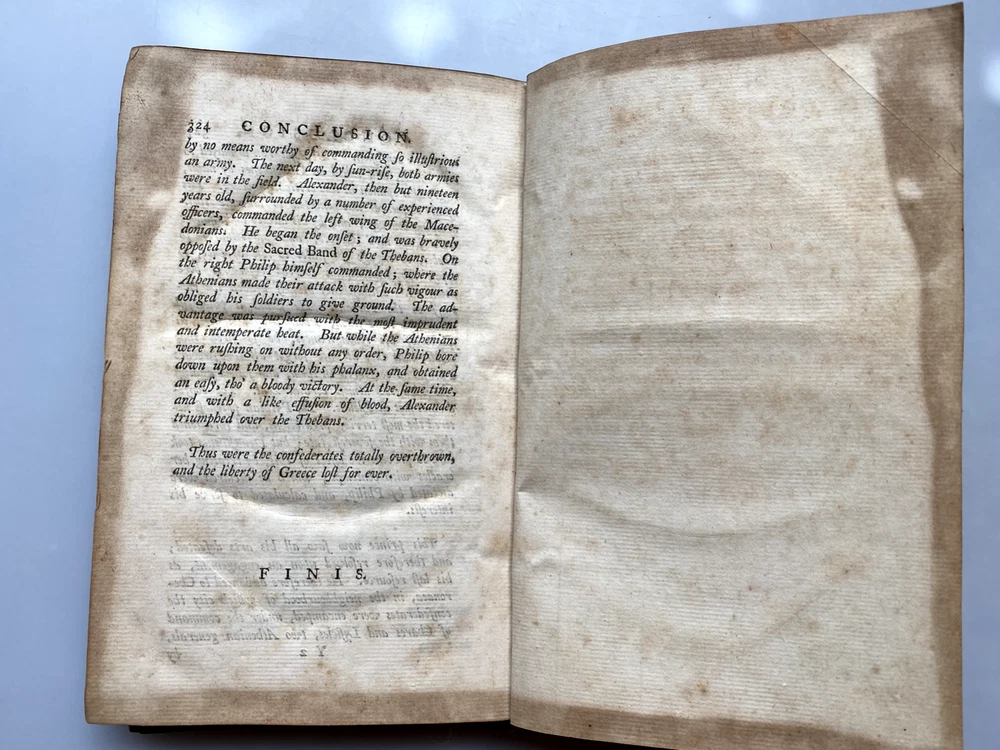 324 CONCLUSION.
by no means worthy of commanding ſo illuſtrious
an army. The next day, by ſun-riſe, both armies
were in the field. Alexander, then but nineteen
years old, ſurrounded by a number of experienced
officers, commanded the left wing of the Mace-
donians. He began the onſet; and was bravely
oppoſed by the Sacred Band of the Thebans. On
the right Philip himſelf commanded; where the
Athenians made their attack with ſuch vigour as
obliged his ſoldiers to give ground. The ad-
vantage was purſued with the moſt imprudent
and intemperate heat. But while the Athenians
were ruſhing on without any order, Philip bore
down upon them with his phalanx, and obtained
an eaſy, tho' a bloody victory. At the ſame time,
and with a like effuſion of blood, Alexander
triumphed over the Thebans.
Thus were the confederates totally overthrown,
and the liberty of Greece loſt for ever.
FINIS.